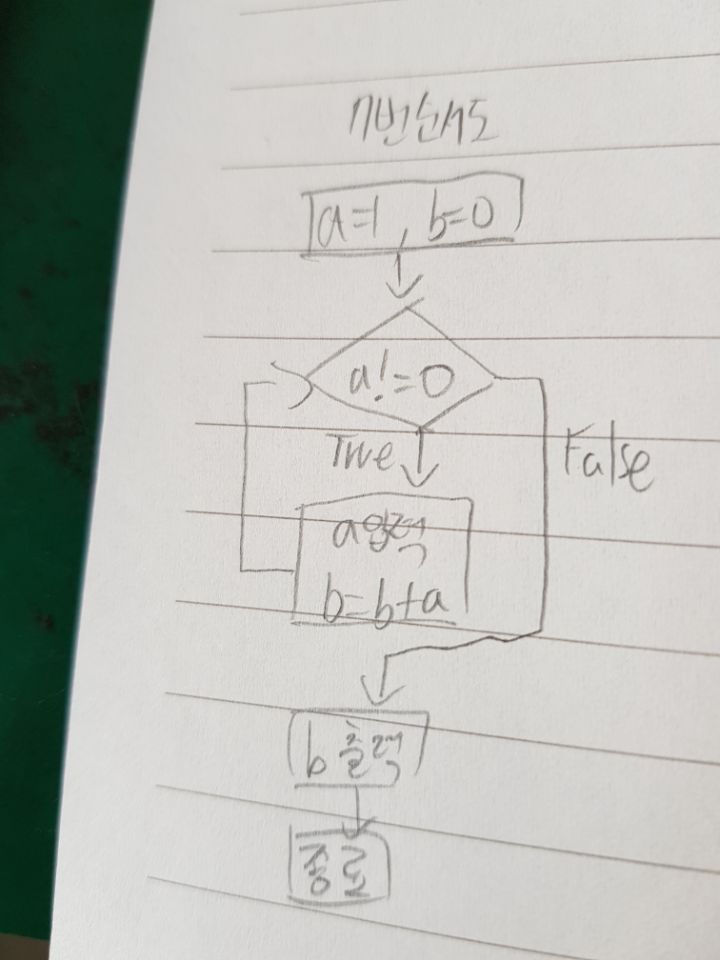 7번순서도
a=1, b=0
a!=0
True
False
a입력
b=b+a
b 출력
종료